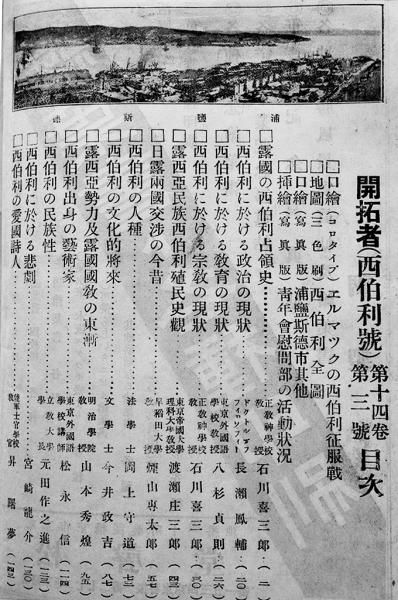 浦鹽斯德
開拓者(西伯利號)第十四卷第三號目次
□口繪(コロタイプ)エルマツクの西伯利征服戰
□地圖(三色刷)西伯利全圖
□口繪(寫眞版)浦鹽斯德市其他
□挿繪(寫眞版)靑年會慰問部の活動狀況
□露國の西伯利占領史………正敎神學校敎授 石川喜三郎(二)
□西伯利に於ける政治の現狀………ドクトルオブフィロソフィー 長瀨鳳輔(二〇)
□西伯利に於ける敎育の現狀………東京外國語學校敎授 八杉貞則(二六)
□西伯利に於ける宗敎の現狀………正敎神學校敎授 石川喜三郎(三〇)
□露西亞民族西伯利殖民史觀………東京帝國大學理科大學敎授 渡瀨庄三郎(四三)
□日露兩國交涉の今昔………早稻田大學敎授 煙山専太郎(五七)
□西伯利の人種………法學士 岡上守道(七二)
□西伯利の文化的將來………文學士 今井政吉(八七)
□露西亞勢力及露國國敎の東漸………明治學院敎授 山本秀煌(九五)
□西伯利出身の藝術家………東京外國語學校講師 松永信(一一四)
□西伯利の民族性………立敎大學學長 元田作之進(一二三)
□西伯利に於ける悲劇………宮崎龍介(一三〇)
□西伯利の愛國詩人………陸軍士官學校敎官 昇曙夢(一四二)